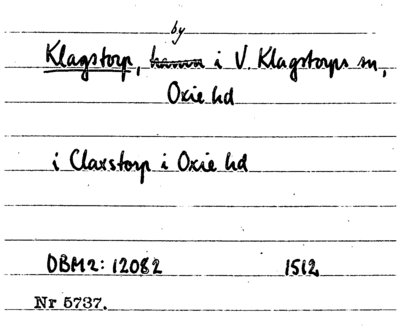 by
Klagstorp, hamn i V. Klagstorps sn,
Oxie hd
i Claxstorp i Oxie hd
DBM2: 12082 1512
Nr 5737.